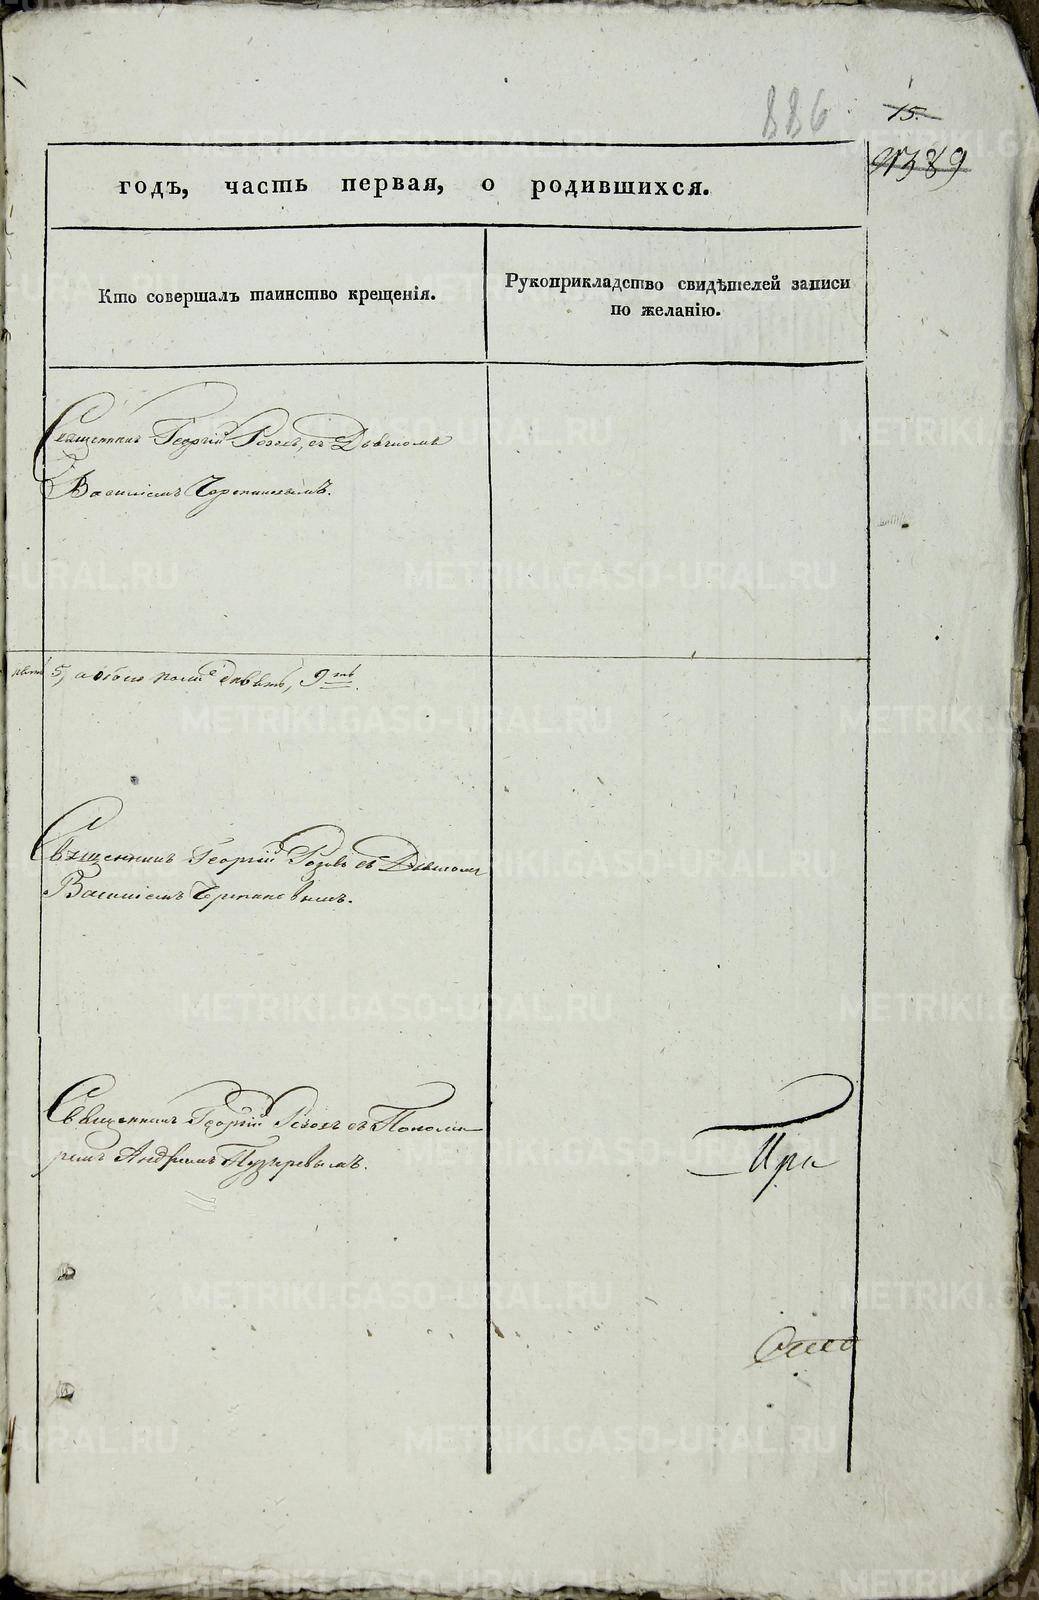 886
15.
годъ, часть первая, о родившихся.
Кто совершалъ таинство крещенія.
Рукоприкладство свидѣтелей записи
по желанію.
Священникъ Георгій съ Дьячкомъ
Василіемъ Черепановымъ.
5, а обоего пола девять, 9ть.
Священникъ Георгій съ Дьячкомъ
Василіемъ Черпановымъ.
Священникъ Георгій съ Понома-
ремъ Андреемъ Пузыревымъ.
METRIKI.GASO-URAL.RU